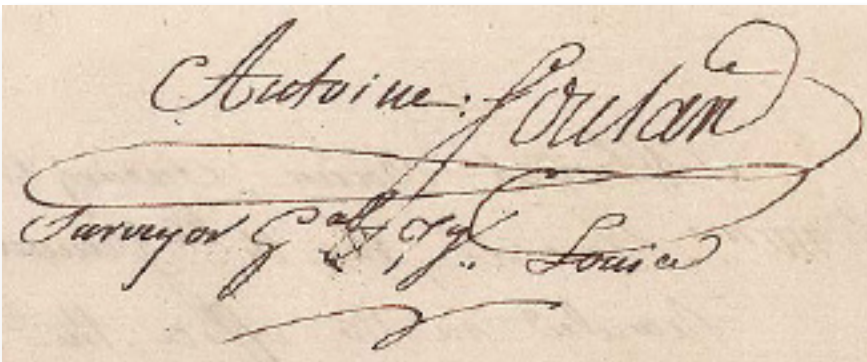 Antoine: Soulard
Surveyor Gal Ty.. Louisa